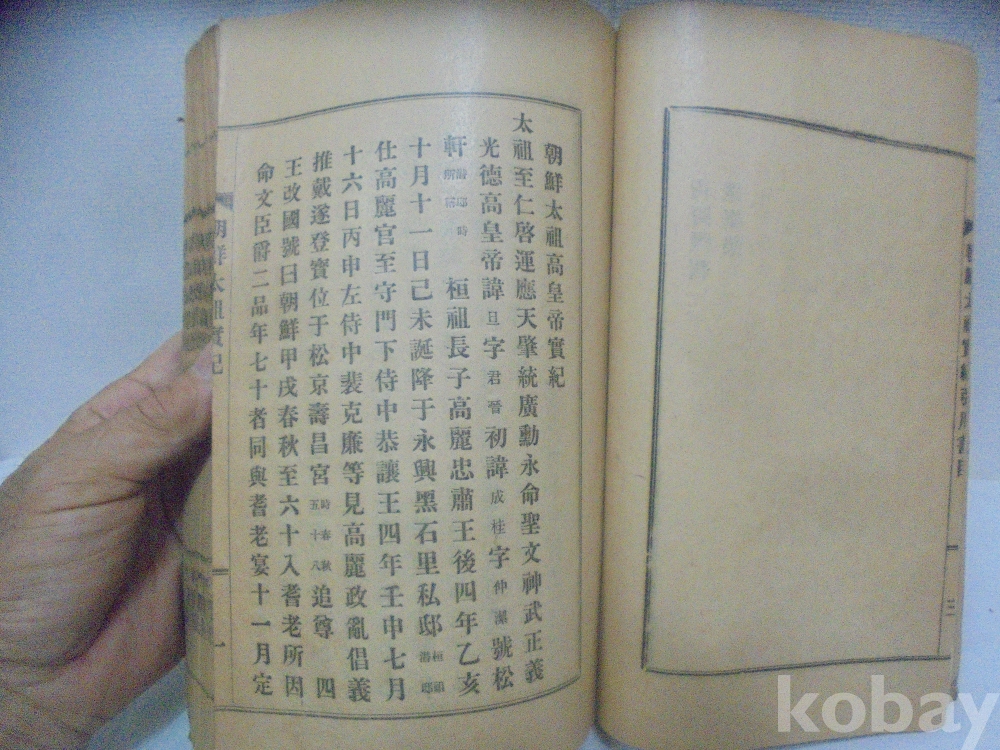 朝鮮太祖高皇帝實紀
太祖至仁啓運應天肇統廣勳永命聖文神武正義
光德高皇帝諱旦字君晉初諱成桂字仲潔號松
軒潛邸時所稱 桓祖長子高麗忠肅王後四年乙亥
十月十一日己未誕降于永興黑石里私邸桓祖潛邸
仕高麗官至守門下侍中恭讓王四年壬申七月
十六日丙申左侍中裴克廉等見高麗政亂倡義
推戴遂登寶位于松京壽昌宮時春秋五十八追尊 四
王改國號曰朝鮮甲戌春秋至六十入耆老所因
命文臣爵二品年七十者同與耆老宴十一月定
朝鮮太祖實紀
一
kobay